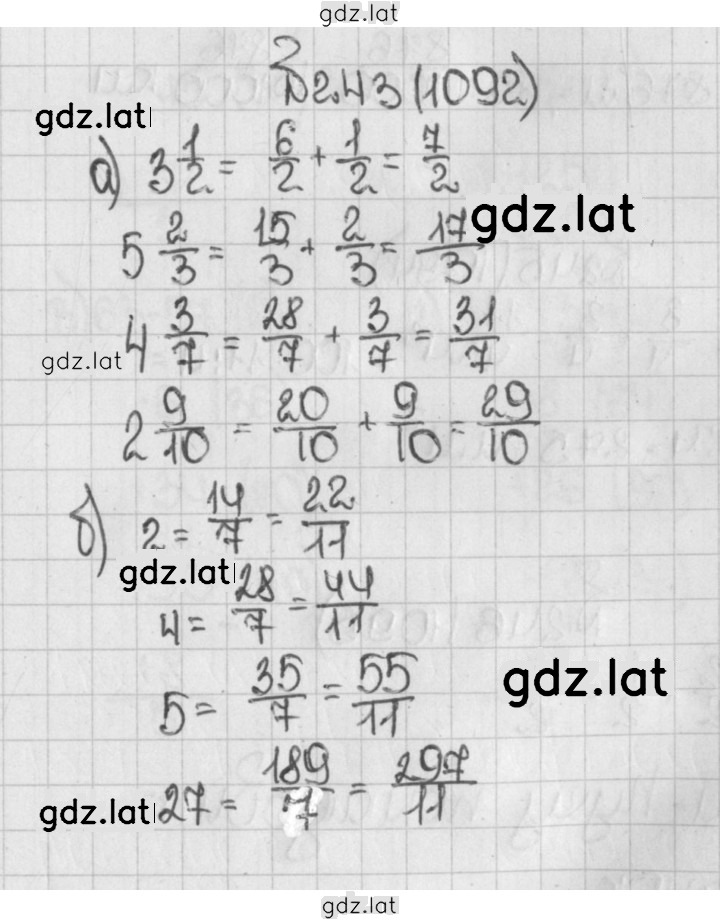 gdz.lat
№ 243 (1092)
gdz.lat
а) 3 1/2 = 6/2 + 1/2 = 7/2
gdz.lat
5 2/3 = 15/3 + 2/3 = 17/3
4 3/7 = 28/7 + 3/7 = 31/7
gdz.lat
2 9/10 = 20/10 + 9/10 = 29/10
б) 2 = 14/7 = 22/11
gdz.lat
4 = 28/7 = 44/11
5 = 35/7 = 55/11
gdz.lat
27 = 189/7 = 297/11
gdz.lat
gdz.lat